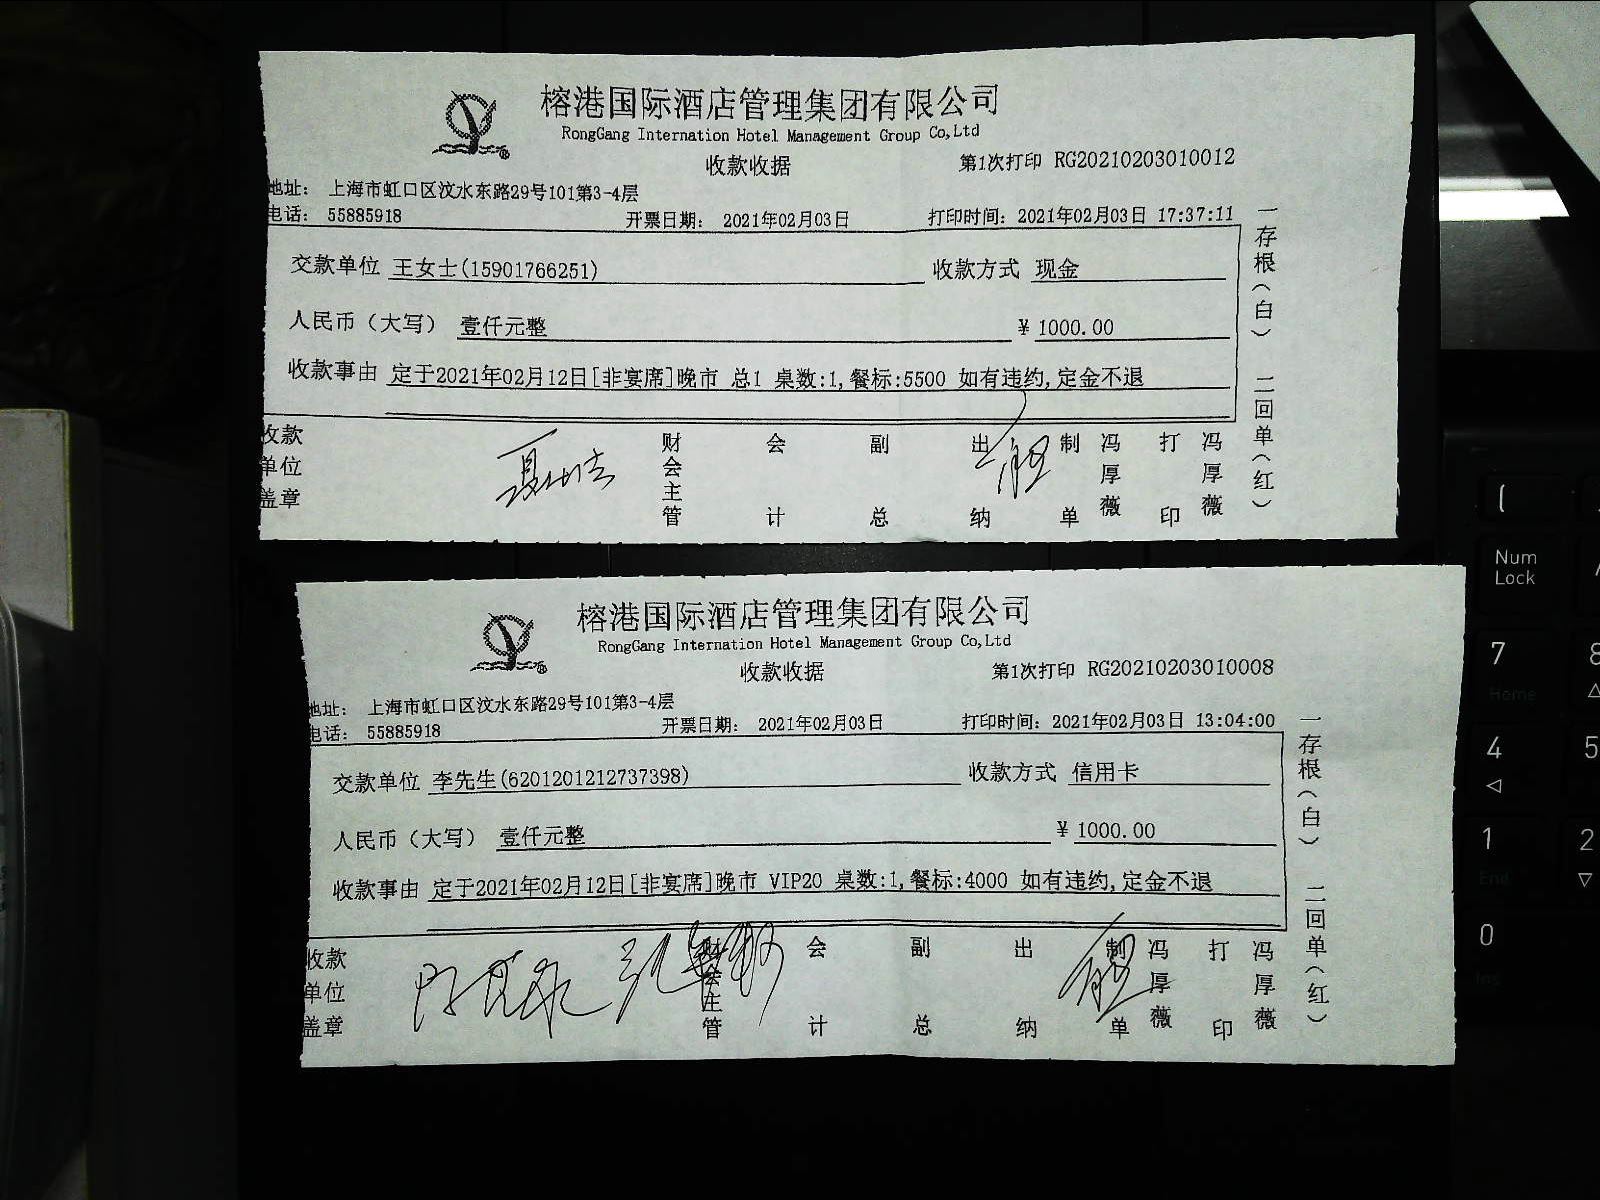 榕港国际酒店管理集团有限公司
RongGang Internation Hotel Management Group Co,Ltd
收款收据 第1次打印 RG20210203010012
地址: 上海市虹口区汶水东路29号101第3-4层
电话: 55885918 开票日期: 2021年02月03日 打印时间: 2021年02月03日 17:37:11
交款单位 王女士(15901766251) 收款方式 现金
人民币（大写） 壹仟元整 ¥ 1000.00
收款事由 定于2021年02月12日[非宴席]晚市 总1 桌数:1,餐标:5500 如有违约,定金不退
收款单位盖章 财会主管 会计 副总 出纳 制单 冯厚薇 打印 冯厚薇
一存根（白） 二回单（红）
榕港国际酒店管理集团有限公司
RongGang Internation Hotel Management Group Co,Ltd
收款收据 第1次打印 RG20210203010008
地址: 上海市虹口区汶水东路29号101第3-4层
电话: 55885918 开票日期: 2021年02月03日 打印时间: 2021年02月03日 13:04:00
交款单位 李先生(6201201212737398) 收款方式 信用卡
人民币（大写） 壹仟元整 ¥ 1000.00
收款事由 定于2021年02月12日[非宴席]晚市 VIP20 桌数:1,餐标:4000 如有违约,定金不退
收款单位盖章 财会主管 会计 副总 出纳 制单 冯厚薇 打印 冯厚薇
一存根（白） 二回单（红）
(
Num
Lock
7 8
Home
4 5
1 2
End
0
Ins